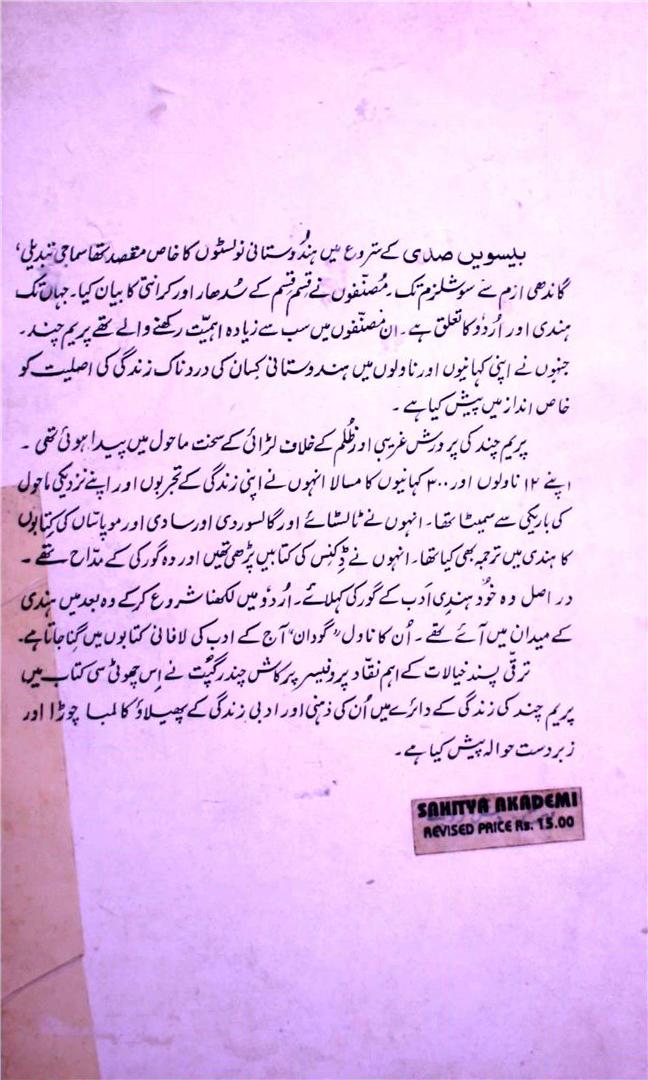 بیسویں صدی کے شروع میں ہندُوستانی نولسٹوں کا خاص مقصد تھا سماجی تبدیلی،
گاندھی ازم سے سوشلزم تک۔ مُصنّفوں نے قِسم قِسم کے سُدھار اور کرانتی کا بیان کیا۔ جہاں تک
ہندی اور اُردُو کا تعلق ہے۔ ان مصنّفوں میں سب سے زیادہ اہمیّت رکھنے والے تھے پریم چند۔
جنہوں نے اپنی کہانیوں اور ناولوں میں ہندوستانی کِسان کی دردناک زندگی کی اصلیت کو
خاص انداز میں پیش کیا ہے۔
پریم چند کی پرورش غریبی اور ظُلم کے خلاف لڑائی کے سخت ماحول میں پیدا ہوئی تھی۔
اپنے ۱۲ ناولوں اور ۳۰۰ کہانیوں کا مسالا انہوں نے اپنی زندگی کے تجربوں اور اپنے نزدیکی ماحول
کی باریکی سے سمیٹا تھا۔ انہوں نے ٹالسٹائے اور گالسوردی اور سادی اور موپاساں کی کتابوں
کا ہندی میں ترجمہ بھی کیا تھا۔ انہوں نے ڈِکنِس کی کتابیں پڑھی تھیں اور وہ گورکی کے مدّاح تھے۔
در اصل وہ خود ہندی اَدب کے گورکی کہلائے۔ اُردو میں لکھنا شروع کر کے وہ بعد میں ہندی
کے میدان میں آئے تھے۔ اُن کا ناول "گودان" آج کے ادب کی لافانی کتابوں میں گِنا جاتا ہے۔
ترقّی پسند خیالات کے اہم نقّاد پروفیسر پرکاش چندر گُپت نے اِس چھوٹی سی کتاب میں
پریم چند کی زندگی کے دائرے میں اُن کی ذہنی اور ادبی زندگی کے پھیلاؤ کا لمبا چوڑا اور
زبردست حوالہ پیش کیا ہے۔
SAHITYA AKADEMI
REVISED PRICE Rs. 15.00